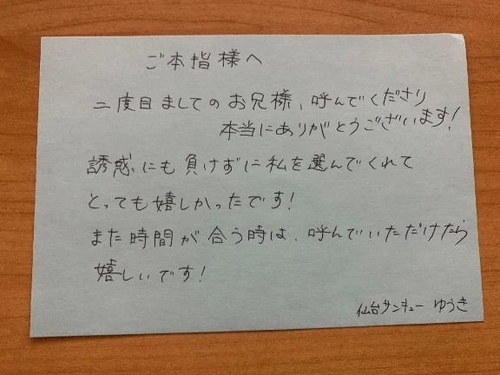 ご本指様へ
二度目ましてのお兄様、呼んでくださり
本当にありがとうございます!
誘惑にも負けずに私を選んでくれて
とっても嬉しかったです!
また時間が合う時は、呼んでいただけたら
嬉しいです!
仙台サンキュー ゆうき